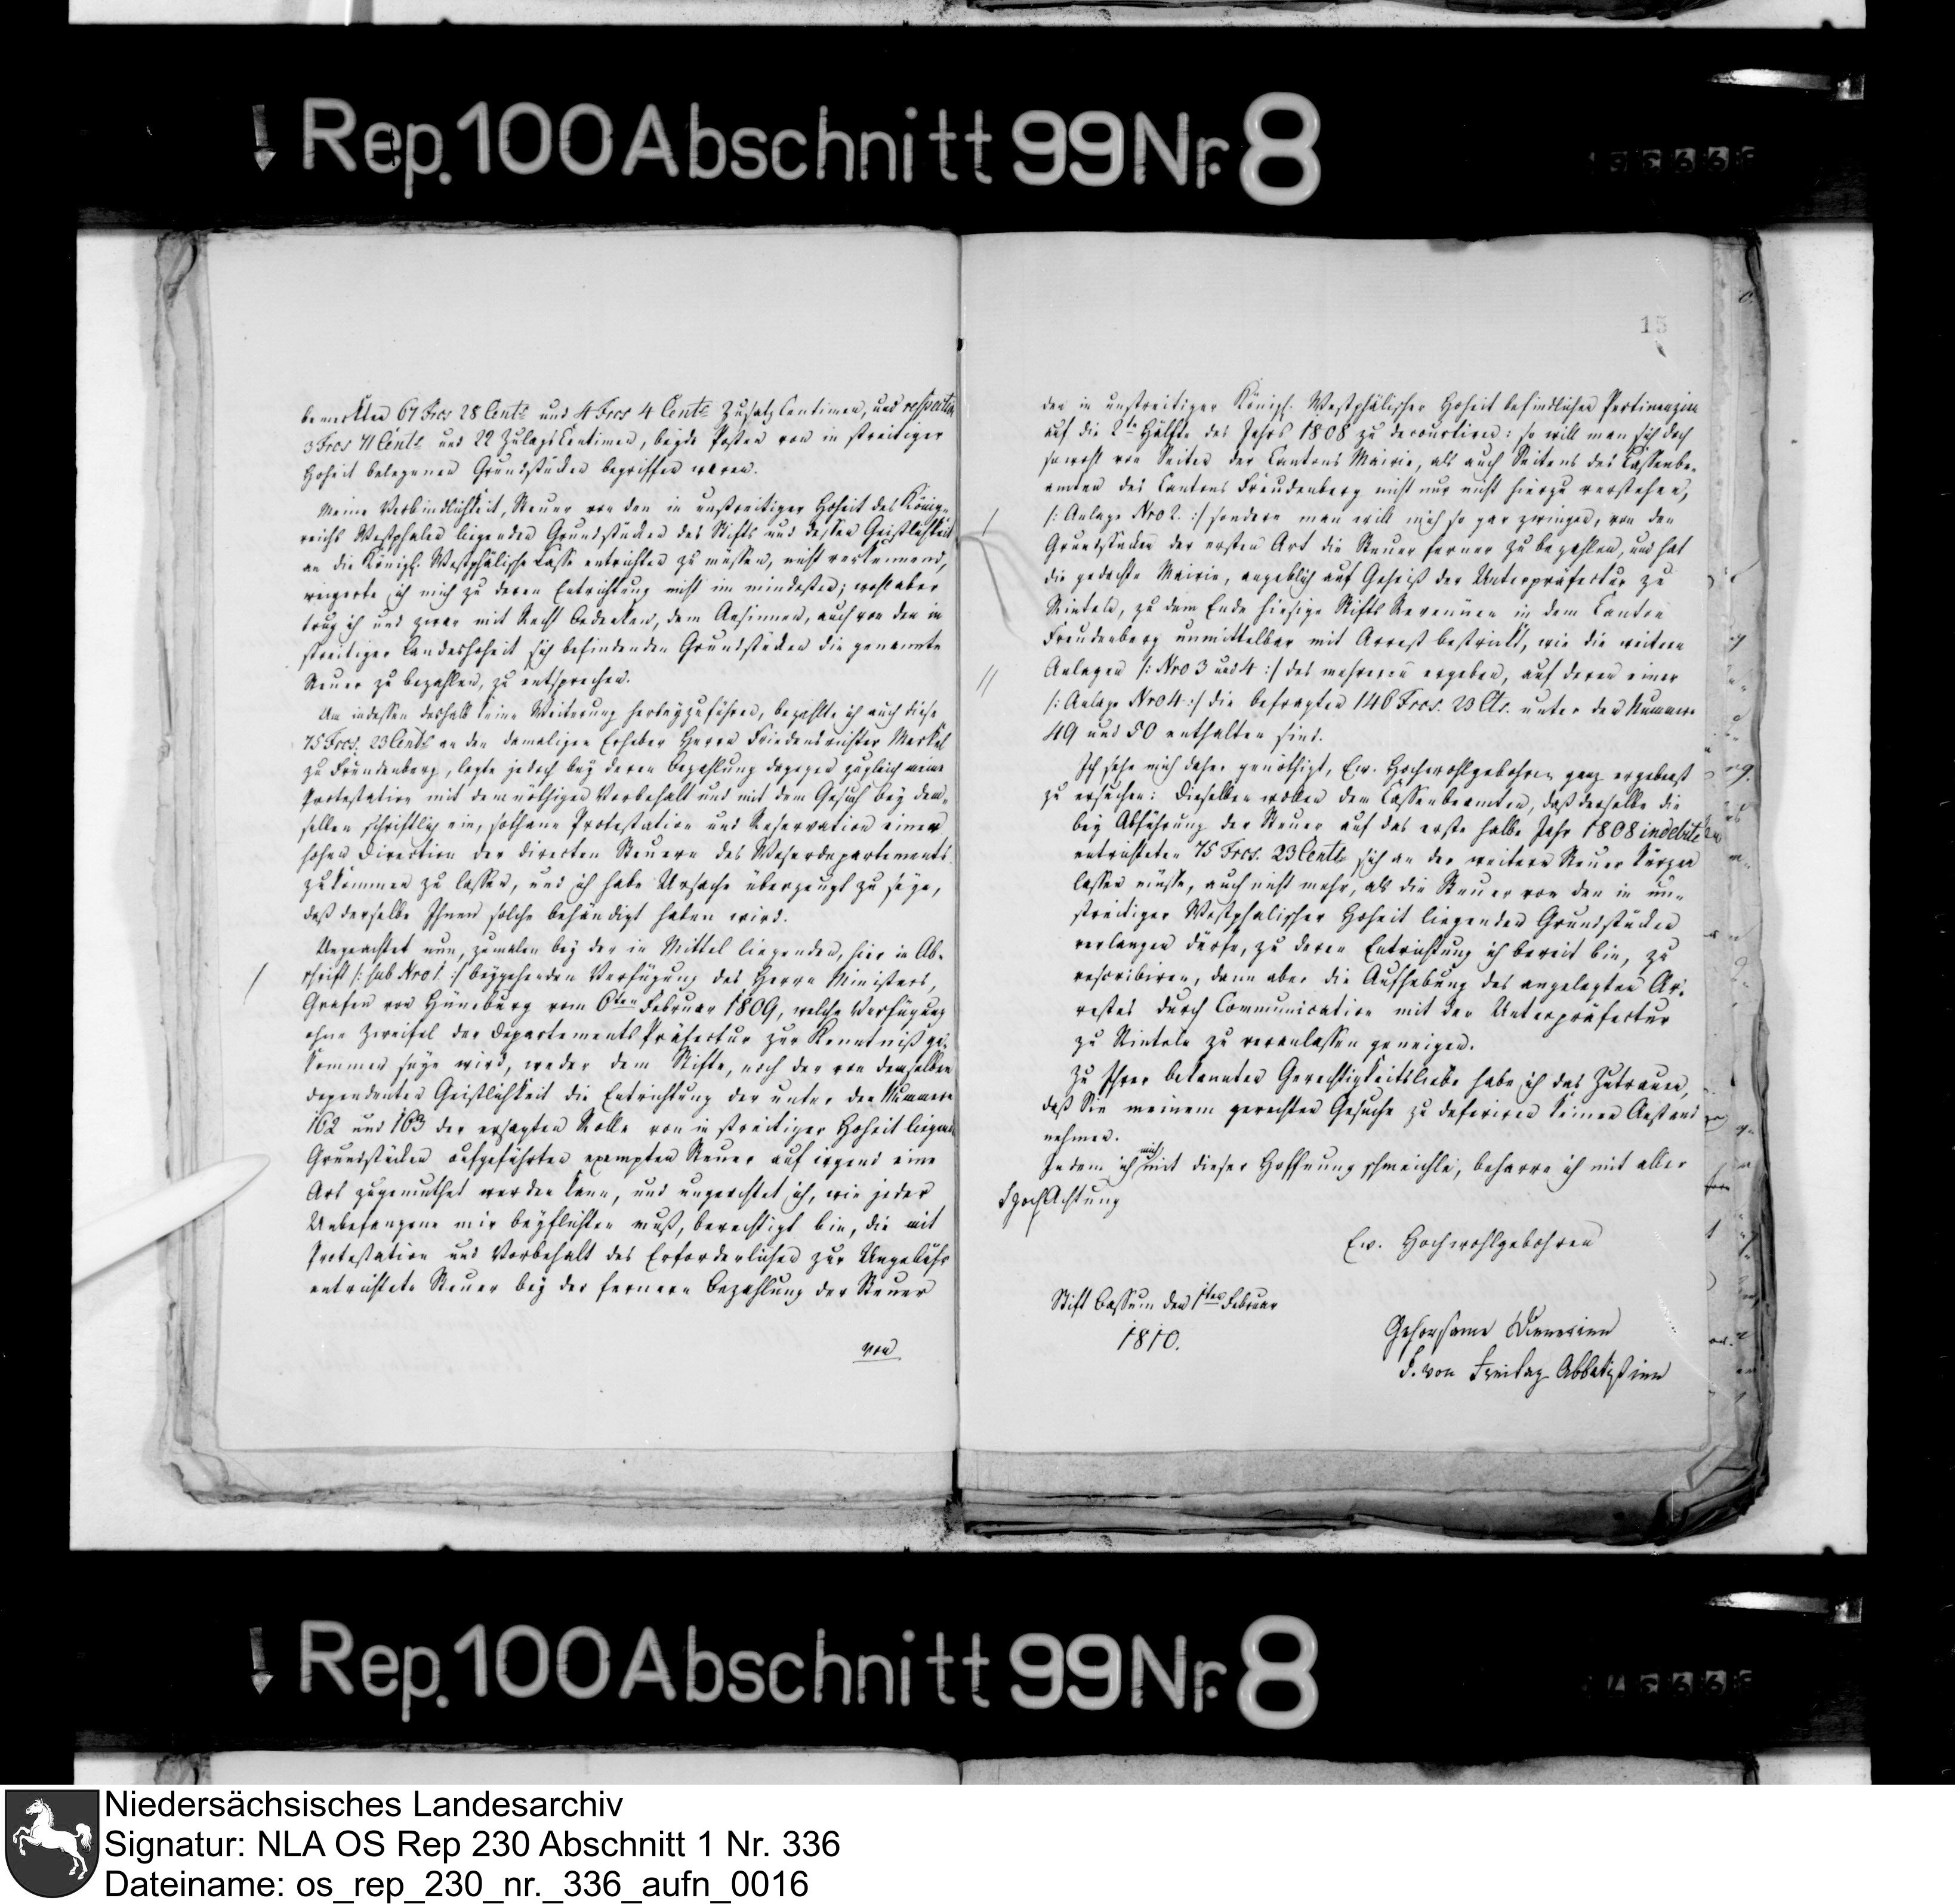 Rep. 100 Abschnitt 99 Nr. 8
bemerkten 67 Frcs 28 Cents und 4 Frcs 4 Cents Zusatz Centimen, und respective
3 Frcs 71 Cents und 22 Zulags Centimen, beyde Posten von in streitiger
Hoheit belegenen Grundstücken begriffen waren.
Meine Verbindlichkeit, Steuer von den in unstreitiger Hoheit des König-
reichs Westphalen liegenden Grundstücken des Stifts und dessen Geistlichkeit
an die Königl. Westphälische Casse entrichten zu müssen, nicht verkennend,
weigerte ich mich zu deren Entrichtung nicht im mindesten; wohl aber
trug ich und zwar mit Recht Bedenken, dem Ansinnen, auch von den in
streitiger Landeshoheit sich befindenden Grundstücken die genannte
Steuer zu bezahlen, zu entsprechen.
Um indessen deshalb keine Weiterung herbeyzuführen, bezahlte ich auch diese
75 Frcs. 23 Cents an den damaligen Erheber Herrn Friedensrichter Merkel
zu Freudenberg, legte jedoch bey deren Bezahlung dagegen zugleich meine
Protestation mit dem nöthigen Vorbehalt und mit dem Gesuch bey dem-
selben schriftlich ein, sothane Protestation und Reservation einer
hohen Direction der directen Steuern des Weserdepartements
zukommen zu lassen, und ich habe Ursache überzeugt zu seyn,
daß derselbe Ihnen solche behändigt haben wird.
Ungeachtet nun, zumalen bey der in Mittel liegenden, hier in Ab-
schrift /: sub Nro 1 :/ beygehenden Verfügung des Herrn Ministers,
Grafen von Hüneburg vom 6ten Februar 1809, welche Verfügung
ohne Zweifel der Departements Präfectur zur Kenntniß ge-
kommen seyn wird, weder dem Stifte, noch der von demselben
dependenten Geistlichkeit die Entrichtung der unter den Nummern
162 und 163 der ersagten Rolle von in streitiger Hoheit liegend
Grundstücken aufgeführten exempten Steuer auf irgend eine
Art zugemuthet werden kann, und ungeachtet ich, wie jeder
Unbefangene mir beypflichten muß, berechtigt bin, die mit
Protestation und Vorbehalt des Erforderlichen zur Ungebühr
entrichtete Steuer bey der fernern Bezahlung der Steuer
von
15
den in unstreitiger Königl. Westphälischer Hoheit befindlichen Pertinenzien
auf die 2te Hälfte des Jahrs 1808 zu decourtiren: so will man sich doch
sowohl von Seiten der Cantons Mairie, als auch Seitens des Cassenbe-
amten des Cantons Freudenberg nicht nur nicht hierzu verstehen,
/: Anlage Nro 2. :/ sondern man will mich so gar zwingen, von den
Grundstücken der ersten Art die Steuer ferner zu bezahlen, und hat
die gedachte Mairie, angeblich auf Geheiß der Unterpräfectur zu
Rinteln, zu dem Ende hiesige Stifts Revenüen in dem Canton
Freudenberg unmittelbar mit Arrest bestrickt, wie die weitern
Anlagen /: Nro 3 und 4 :/ des mehreren ergeben, auf deren einer
/: Anlage Nro 4 :/ die befragten 146 Frcs. 23 Cts. unter den Nummern
49 und 50 enthalten sind.
Ich sehe mich daher genöthigt, Ew. Hochwohlgebohren ganz ergebenst
zu ersuchen: Dieselben wollen dem Cassenbeamten, daß derselbe die
bey Abführung der Steuer auf das erste halbe Jahr 1808 indebite
entrichteten 75 Frcs. 23 Cents sich an der weitern Steuer kürzen
lassen müsse, auch nicht mehr, als die Steuer von den in un-
streitiger Westphälischer Hoheit liegenden Grundstücken
verlangen dürfe, zu deren Entrichtung ich bereit bin, zu
rescribiren, dann aber die Aufhebung des angelegten Ar-
restes durch Communication mit der Unterpräfectur
zu Rinteln zu veranlassen geneigen.
Zu Ihrer bekannten Gerechtigkeitsliebe habe ich das Zutrauen,
daß Sie meinem gerechten Gesuche zu deferiren keinen Anstand
nehmen.
Indem ich mich mit dieser Hoffnung schmeichle, beharre ich mit aller
HochAchtung
Ew. Hochwohlgebohren
Stift Bassum den 1ten Februar
1810.
Gehorsame Dienerinn
v. von Freitag Abbatißinn
Rep. 100 Abschnitt 99 Nr. 8
Niedersächsisches Landesarchiv
Signatur: NLA OS Rep 230 Abschnitt 1 Nr. 336
Dateiname: os_rep_230_nr._336_aufn_0016